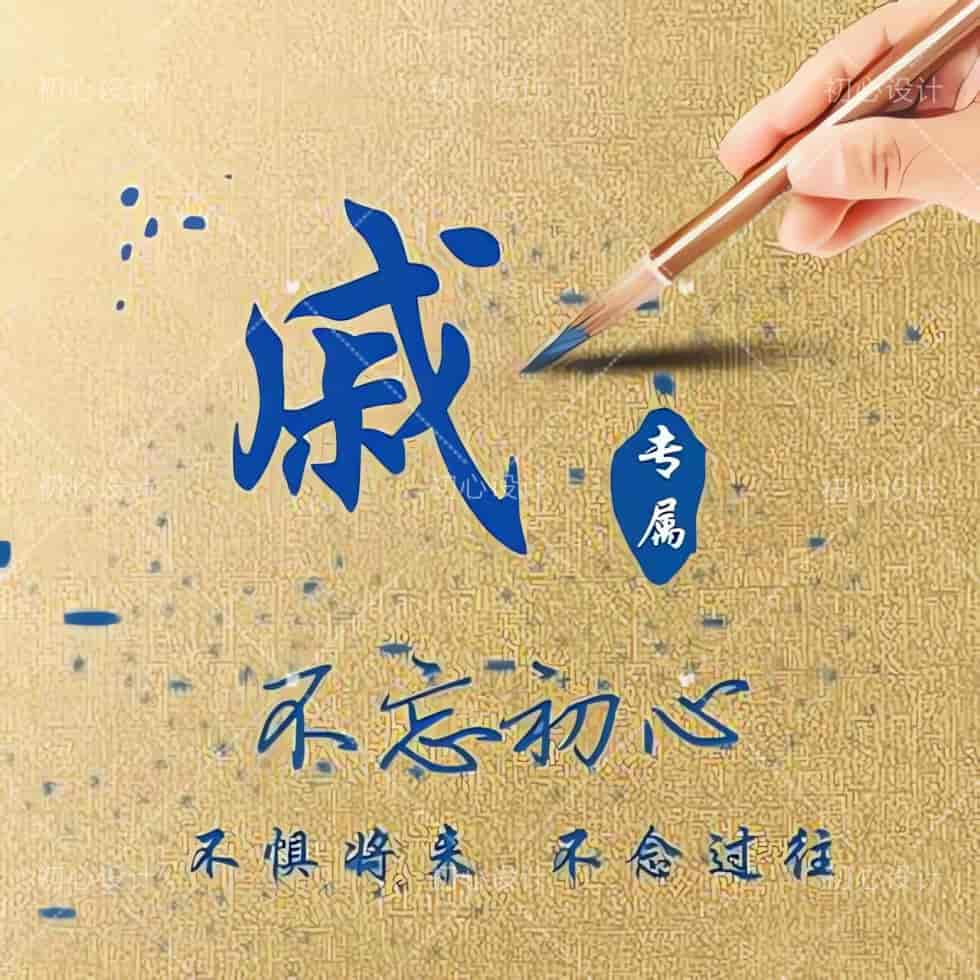 初心设计 初心设计 初心设计
戚
专
属
初心设计 初心设计 初心设计
不忘初心
不惧将来 不念过往
初心设计 初心设计 初心设计